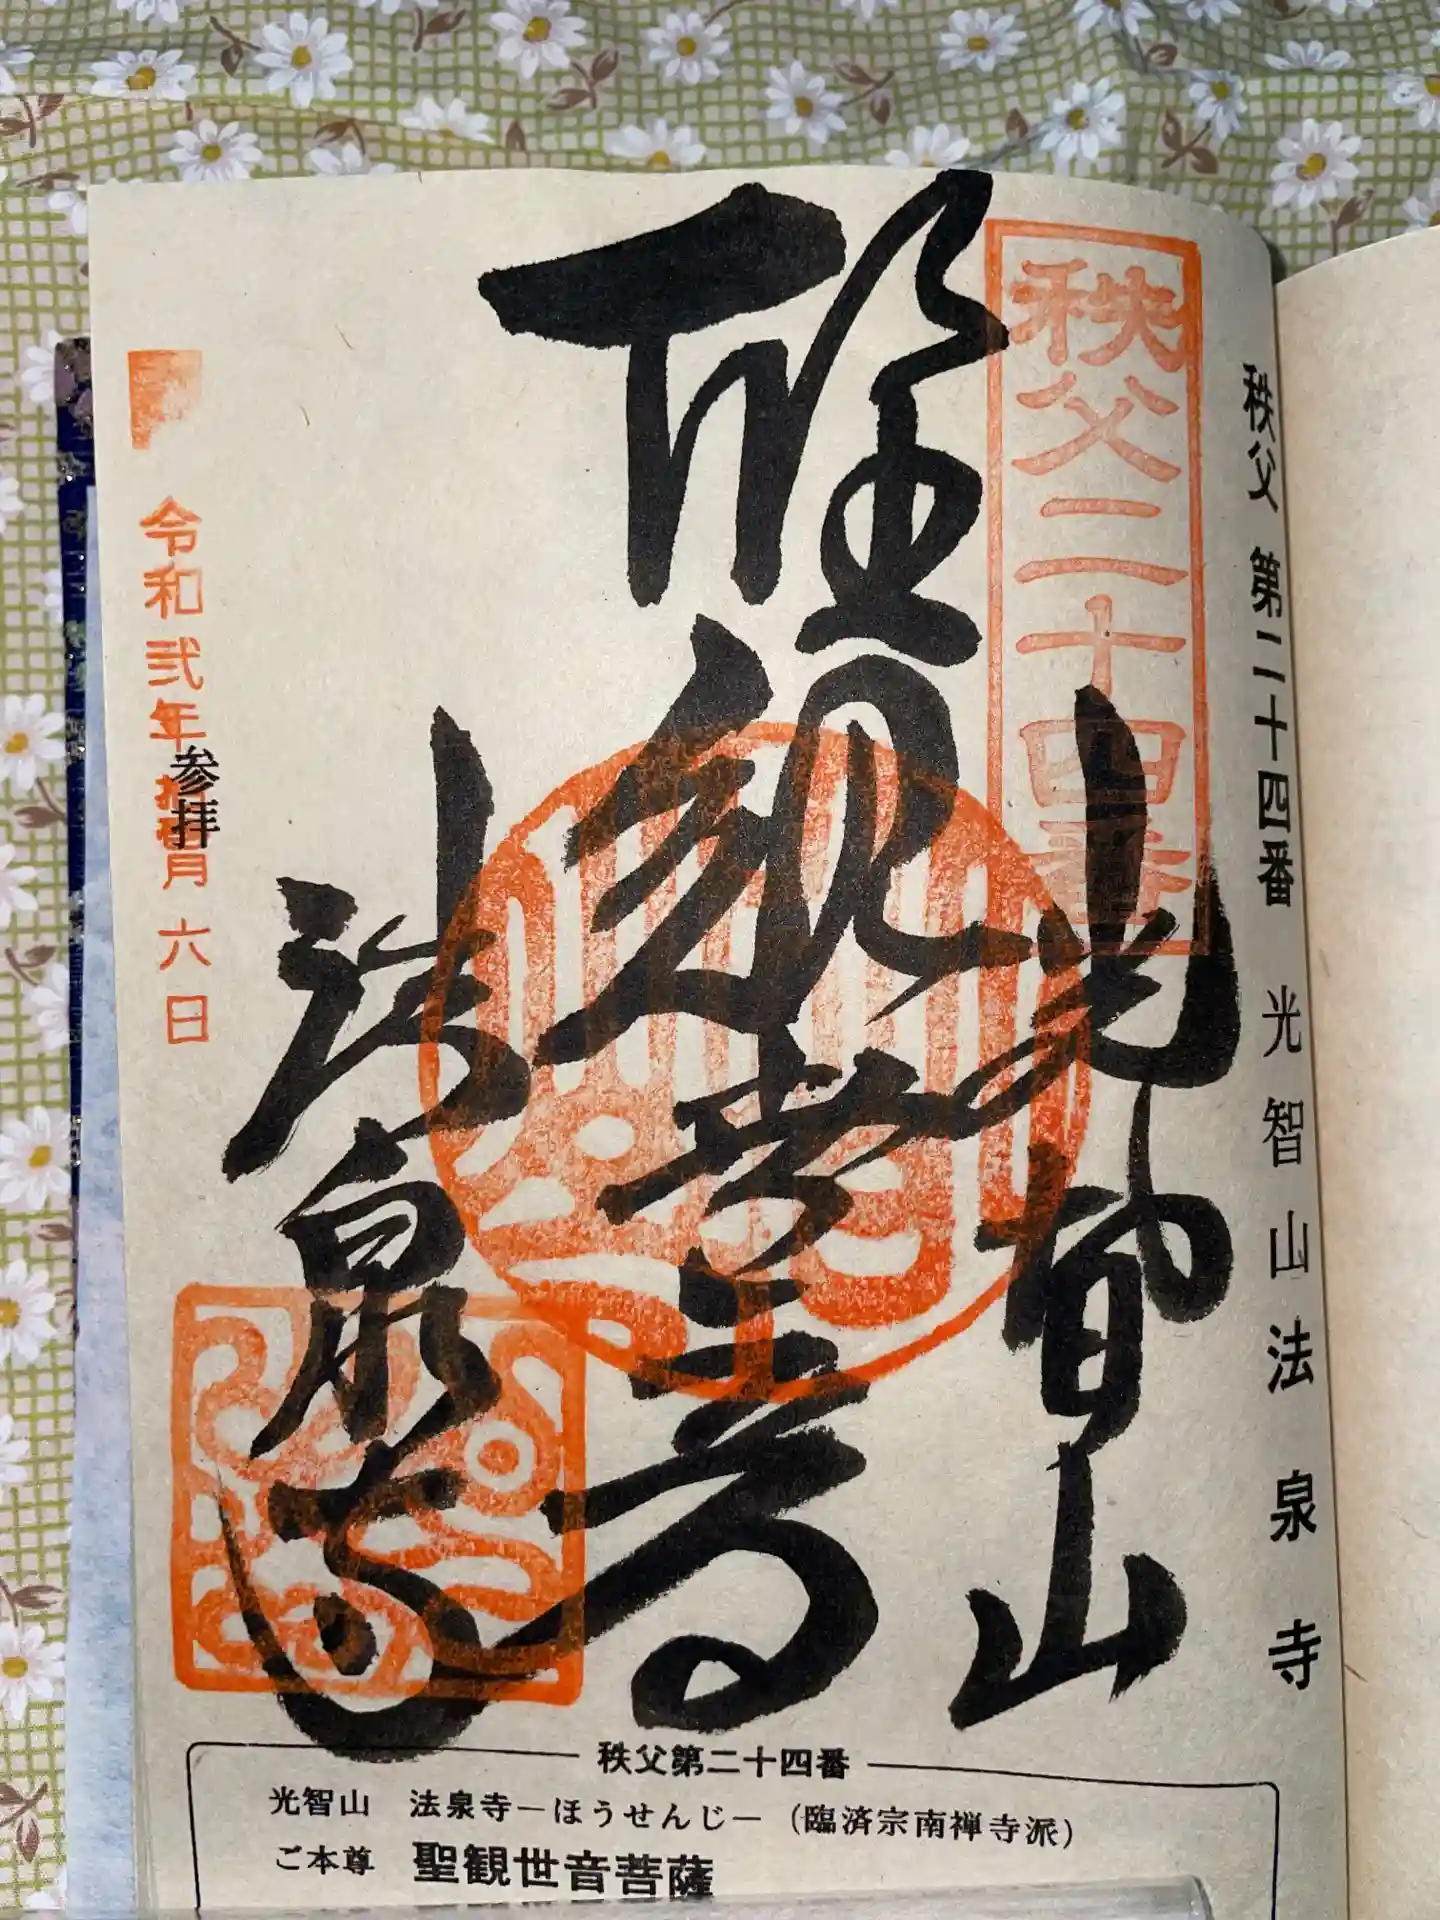 秩父 第二十四番 光智山法泉寺
秩父二十四番
光智山
聖観世音
法泉寺
令和弐年拾壱月六日
参拝
秩父第二十四番
光智山 法泉寺―ほうせんじ―(臨済宗南禅寺派)
ご本尊 聖観世音菩薩